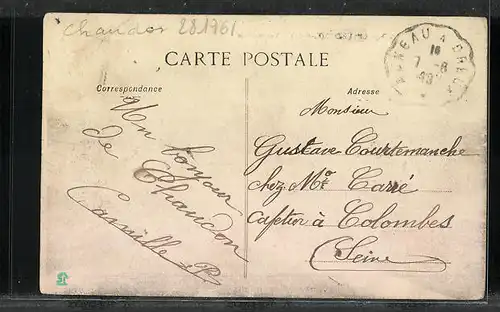 chaudon 28.1761
CARTE POSTALE
Correspondance
Adresse
Un bonjour
de
Chaudon
Camille P
Monsieur
Gustave Courtemanche
chez Mr Carré
Cafetier à Colombes
(Seine)
AUNEAU A DREUX
7-8